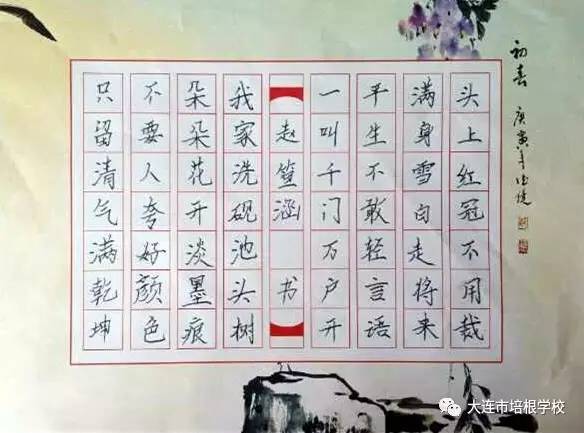 初春
庚寅年
头上红冠不用裁
满身雪白走将来
平生不敢轻言语
一叫千门万户开
赵涵 书
我家洗砚池头树
朵朵花开淡墨痕
不要人夸好颜色
只留清气满乾坤
大连市培根学校